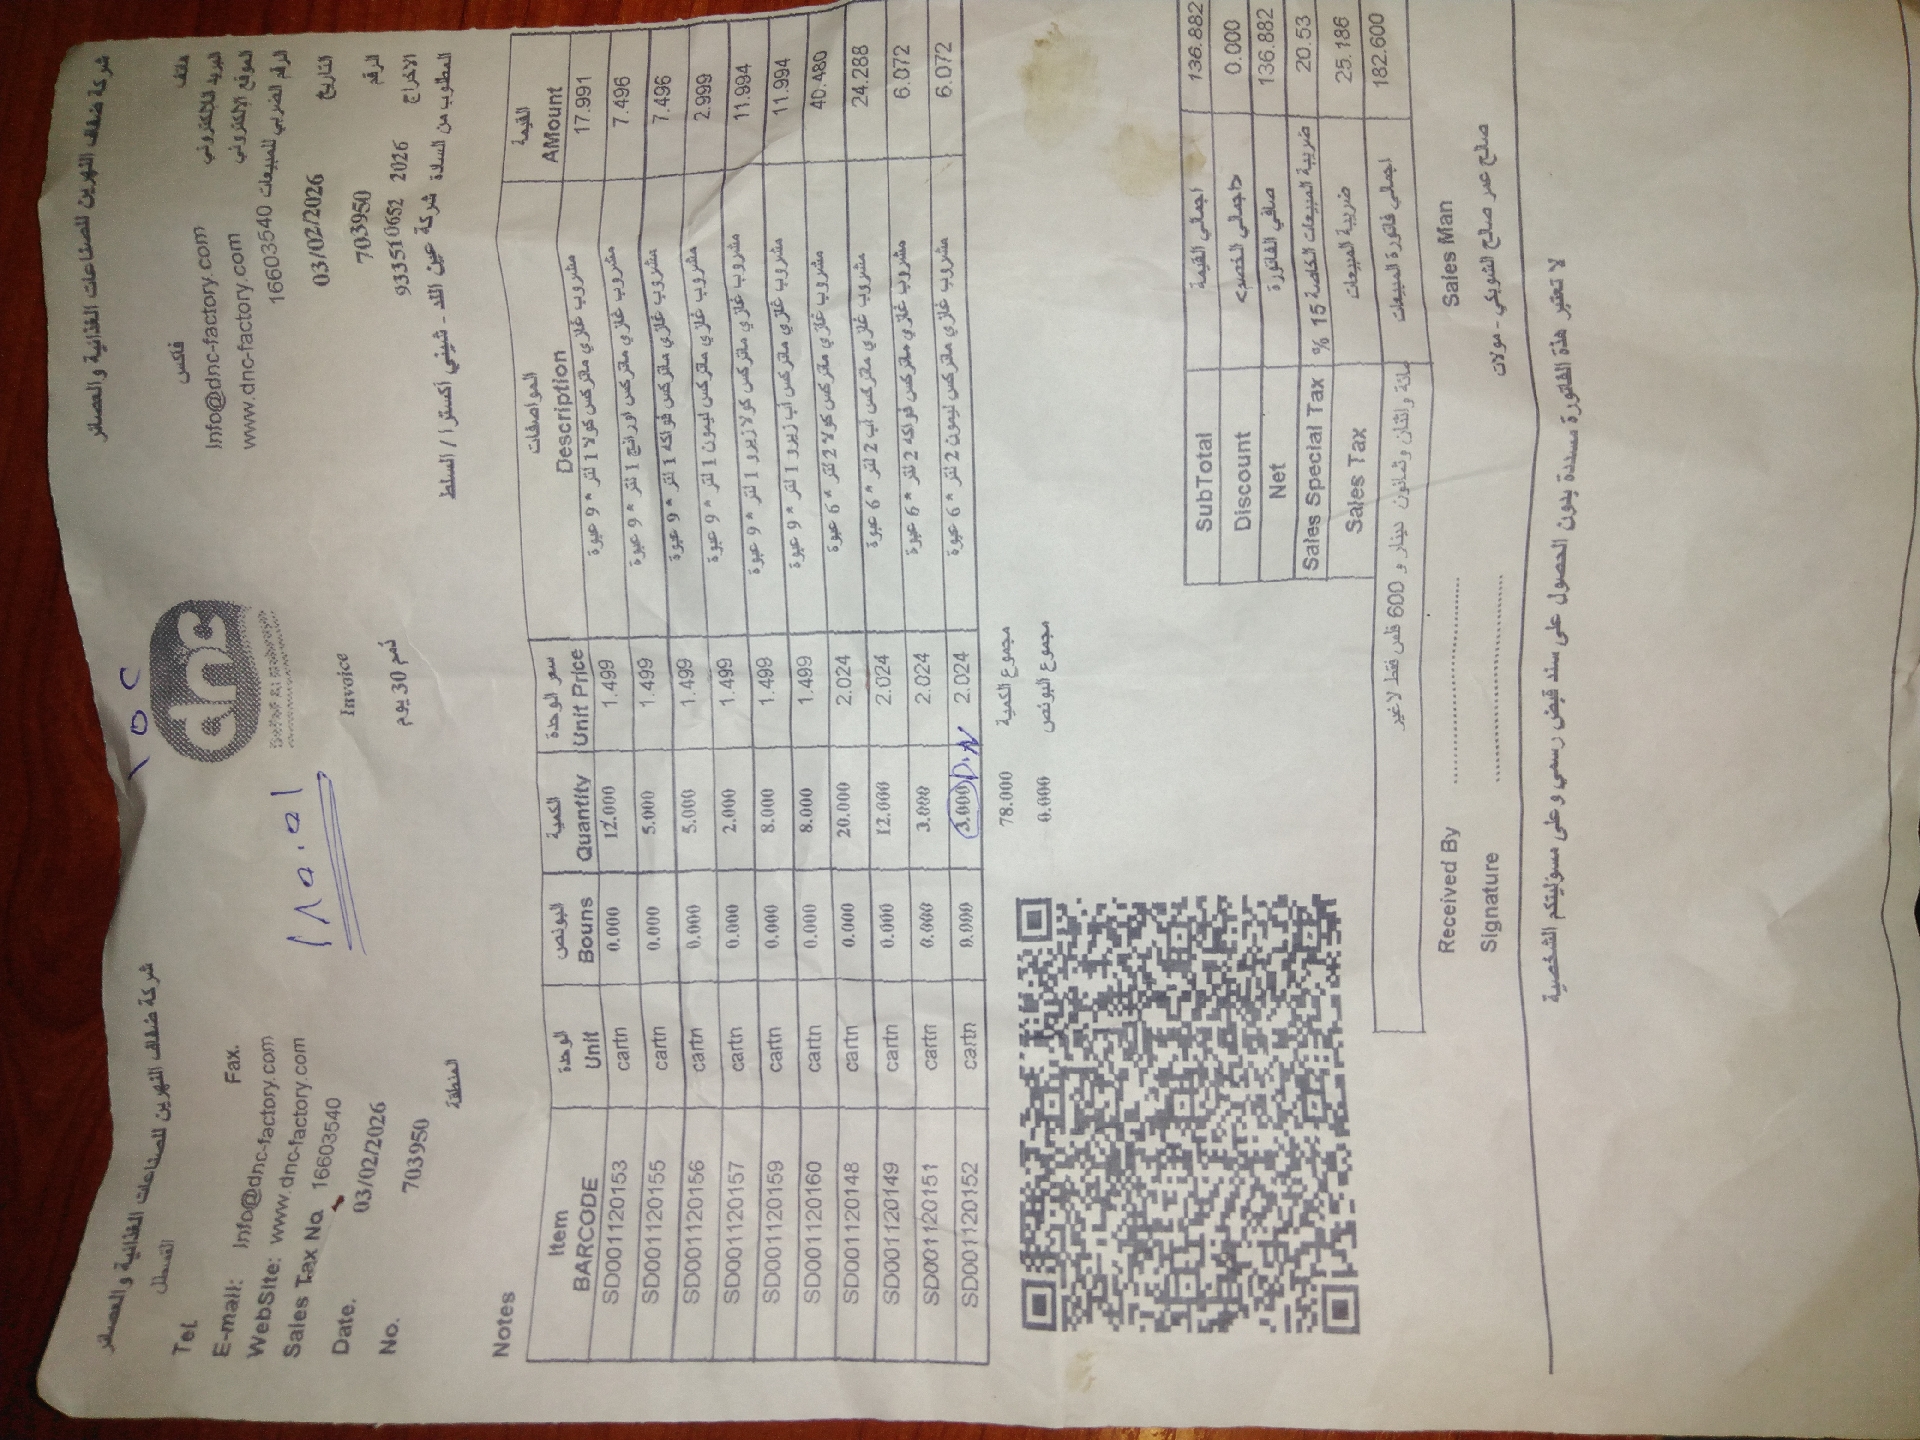 شركة ضفاف النهرين للصناعات الغذائية والعصائر
شركة ضفاف النهرين للصناعات الغذائية والعصائر
القسطل
dnc
١٥٢
Tel.
Fax.
فاكس
هاتف
E-mail: Info@dnc-factory.com
Info@dnc-factory.com البريد الالكتروني
WebSite: www.dnc-factory.com
www.dnc-factory.com الموقع الالكتروني
Sales Tax No. 16603540
16603540 الرقم الضريبي للمبيعات
Invoice
Date. 03/02/2026
03/02/2026 التاريخ
No. 703950
703950 الرقم
ذمم 30 يوم
933510652 2026 الاخراج
المنطقة
المطلوب من السادة شركة عين الله - شيني اكسترا / السلط
Notes
Item الوحدة البونص الكمية سعر الوحدة المواصفات القيمة
BARCODE Unit Bouns Quantity Unit Price Description AMount
SD001120153 cartn 0.000 12.000 1.499 مشروب غازي ماتركس كولا 1 لتر * 9 عبوة 17.991
SD001120155 cartn 0.000 5.000 1.499 مشروب غازي ماتركس اورانج 1 لتر * 9 عبوة 7.496
SD001120156 cartn 0.000 5.000 1.499 مشروب غازي ماتركس فواكه 1 لتر * 9 عبوة 7.496
SD001120157 cartn 0.000 2.000 1.499 مشروب غازي ماتركس ليمون 1 لتر * 9 عبوة 2.999
SD001120159 cartn 0.000 8.000 1.499 مشروب غازي ماتركس كولا زيرو 1 لتر * 9 عبوة 11.994
SD001120160 cartn 0.000 8.000 1.499 مشروب غازي ماتركس اب زيرو 1 لتر * 9 عبوة 11.994
SD001120148 cartn 0.000 20.000 2.024 مشروب غازي ماتركس كولا 2 لتر * 6 عبوة 40.480
SD001120149 cartn 0.000 12.000 2.024 مشروب غازي ماتركس اب 2 لتر * 6 عبوة 24.288
SD001120151 cartn 0.000 3.000 2.024 مشروب غازي ماتركس فواكه 2 لتر * 6 عبوة 6.072
SD001120152 cartn 0.000 3.000 2.024 مشروب غازي ماتركس ليمون 2 لتر * 6 عبوة 6.072
78.000 مجموع الكمية
0.000 مجموع البونص
SubTotal اجمالي القيمة 136.882
Discount اجمالي الخصم> 0.000
Net صافي الفاتورة 136.882
Sales Special Tax ضريبة المبيعات الخاصة 15 % 20.53
Sales Tax ضريبة المبيعات 25.186
اجمالي فاتورة المبيعات 182.600
مائة واثنان وثمانون دينار و 600 فلس فقط لاغير
Received By
Sales Man
Signature
صالح عمر صالح الشوبكي - مولات
لا تعتبر هذة الفاتورة مسددة بدون الحصول على سند قبض رسمي وعلى مسؤليتكم الشخصية